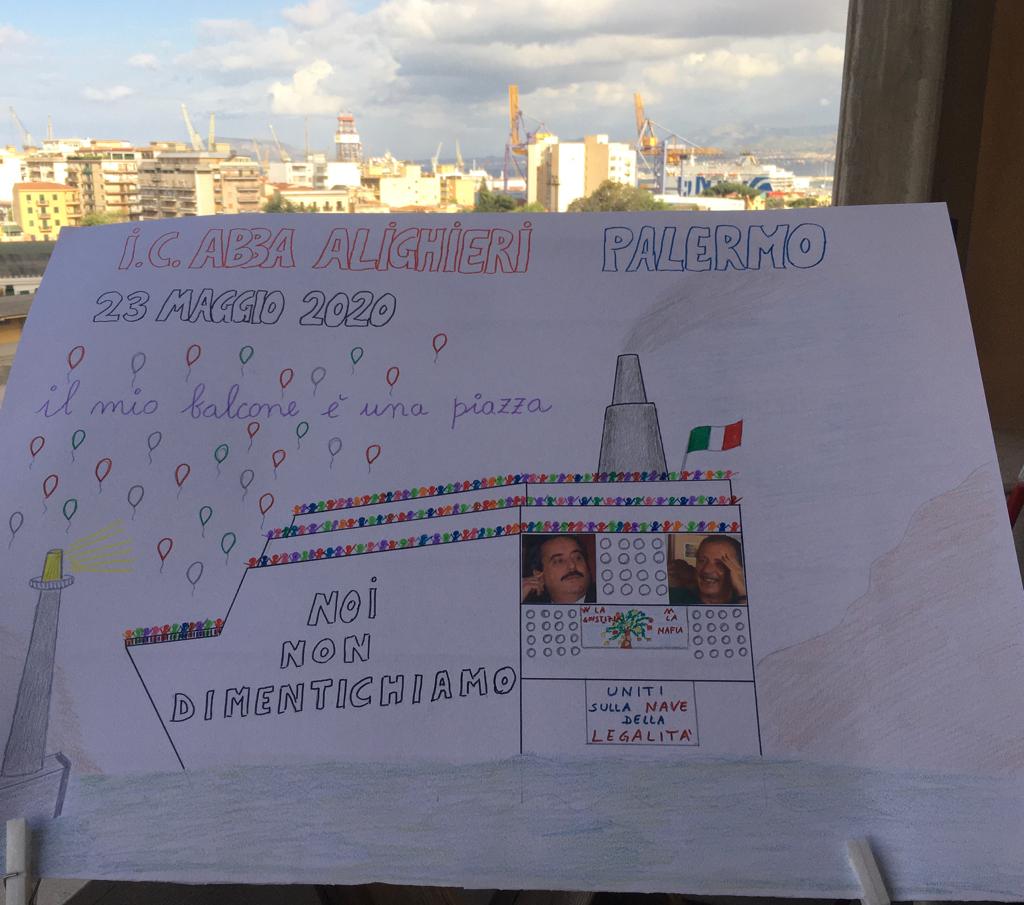 I.C. ABBA ALIGHIERI PALERMO
23 MAGGIO 2020
il mio balcone è una piazza
NOI
NON
DIMENTICHIAMO
W LA
GIUSTIZIA
M LA
MAFIA
UNITI
SULLA NAVE
DELLA
LEGALITA'